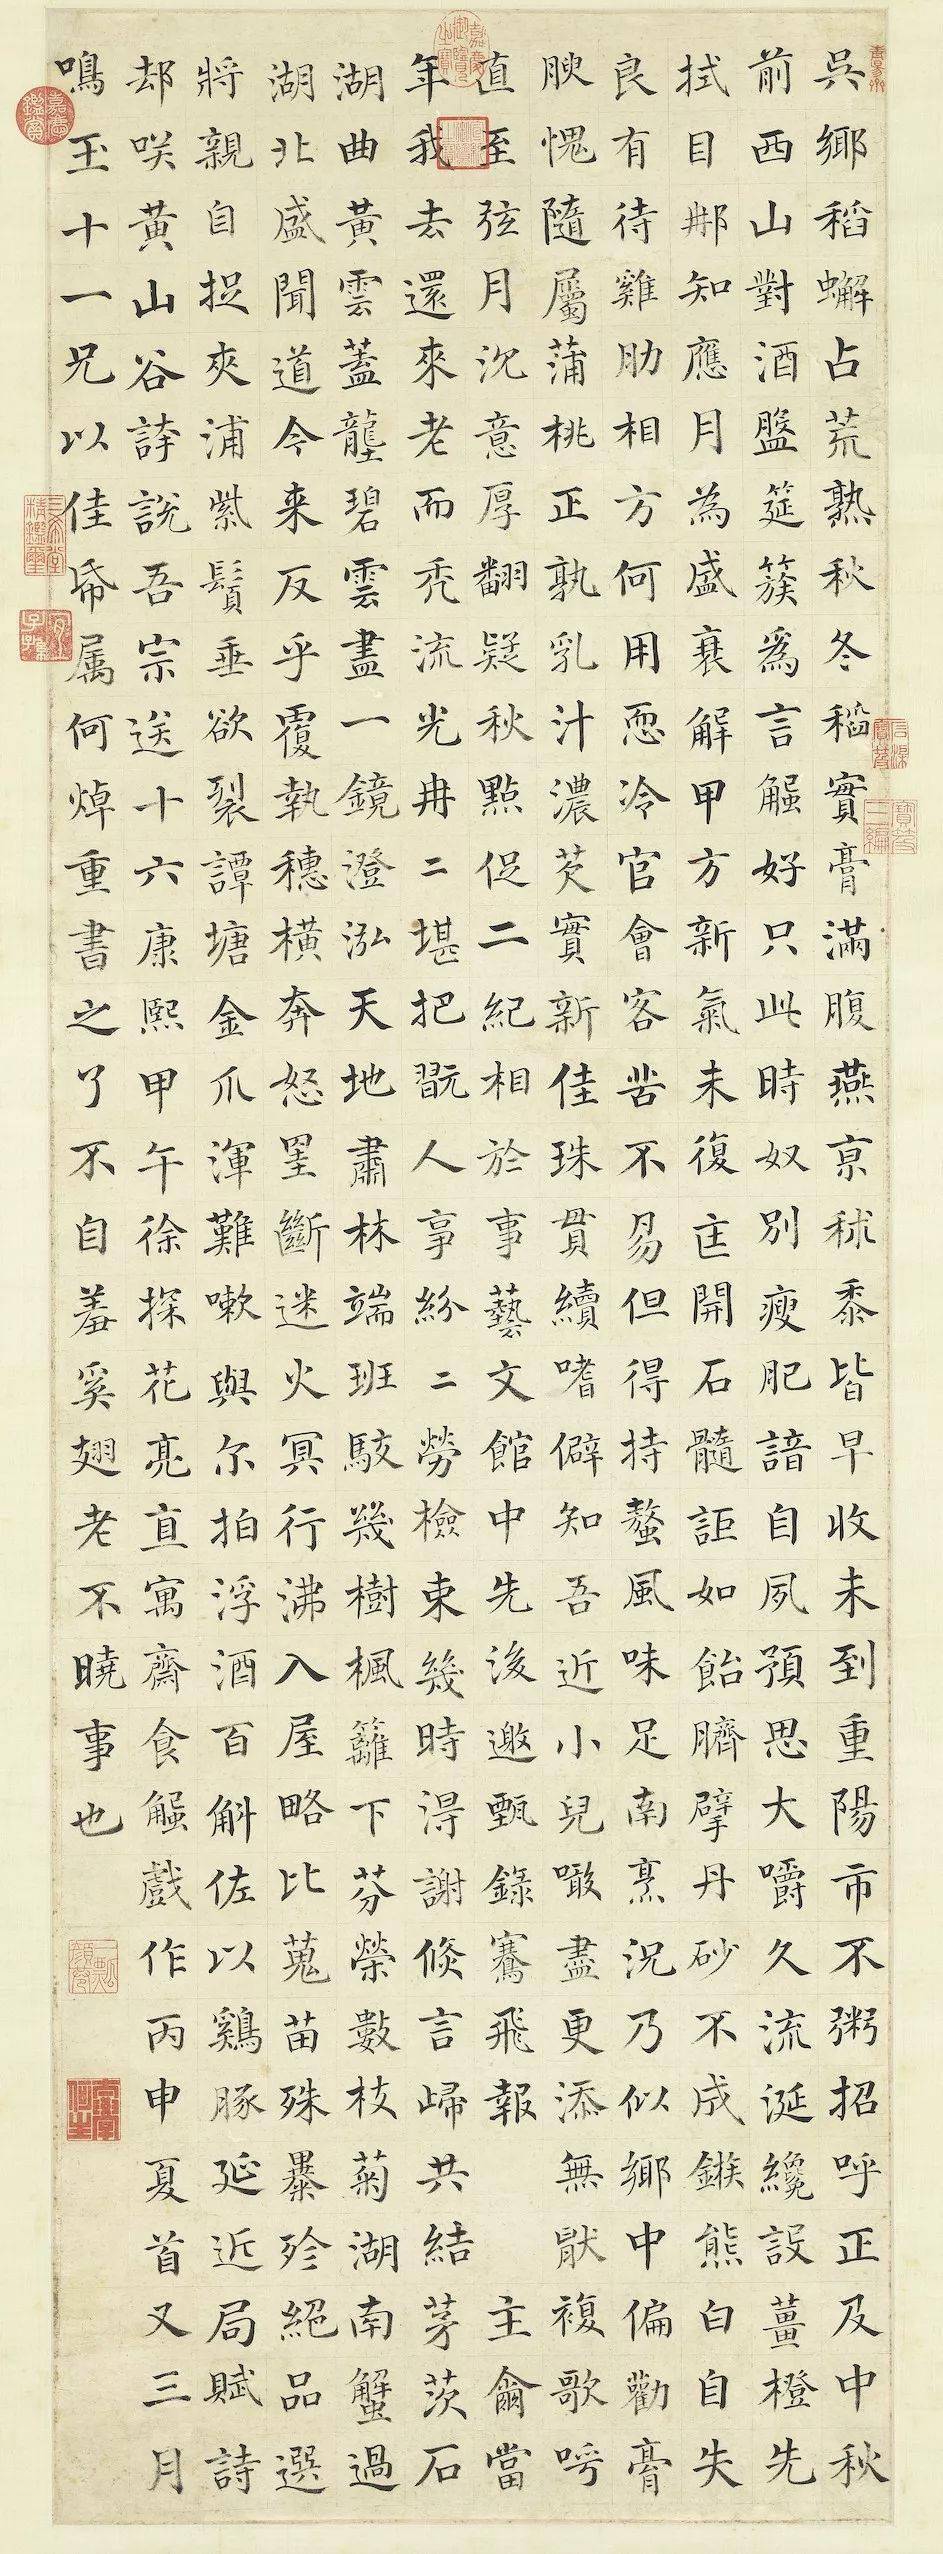 吳鄉稻蠏占荒熟秋冬稻實膏滿腹燕京秫黍皆早收未到重陽市不粥招呼正及中秋
前西山對酒盤筵簇為言觿好只此時奴別瘦肥諳自夙預思大嚼久流涎纔設薑橙先
拭目那知應月為盛衰解甲方新氣未復匡開石髓詎如飴臍擘丹砂不成鏃熊白自失
良有待雞肋相方何用恧冷官會客苦不易但得持螯風味足南烹況乃似鄉中偏勸膏
腴愧隨屬蒲桃正孰乳汁濃芡實新佳珠貫續嗜僻知吾近小兒噉盡更添無猒複歌呺
直至弦月沉意厚翻疑秋點促二紀相於事藝文館中先後邀甄錄騫飛報主龠當
年我去還來老而禿流光冉二堪把翫人事紛二勞檢束幾時得謝倐言歸共結茅茨石
湖曲黃雲蓋壟碧雲盡一鏡澄泓天地肅林端班駁幾樹楓籬下芬榮數枝菊湖南蟹過
湖北盛聞道今来反乎覆執穗橫奔怒罣斷迷火冥行沸入屋略比蒐苗殊暴殄絕品選
將親自捉夾浦紫鬚垂欲裂譚塘金爪渾難嗽與尔拍浮酒百斛佐以鷄豚延近局賦詩
却咲黃山谷詩說吾宗送十六康熙甲午徐探花亮直寓齋食觿戲作丙申夏首又三月
鳴玉十一兄以佳帋属何焯重書之了不自羞奚翅老不曉事也